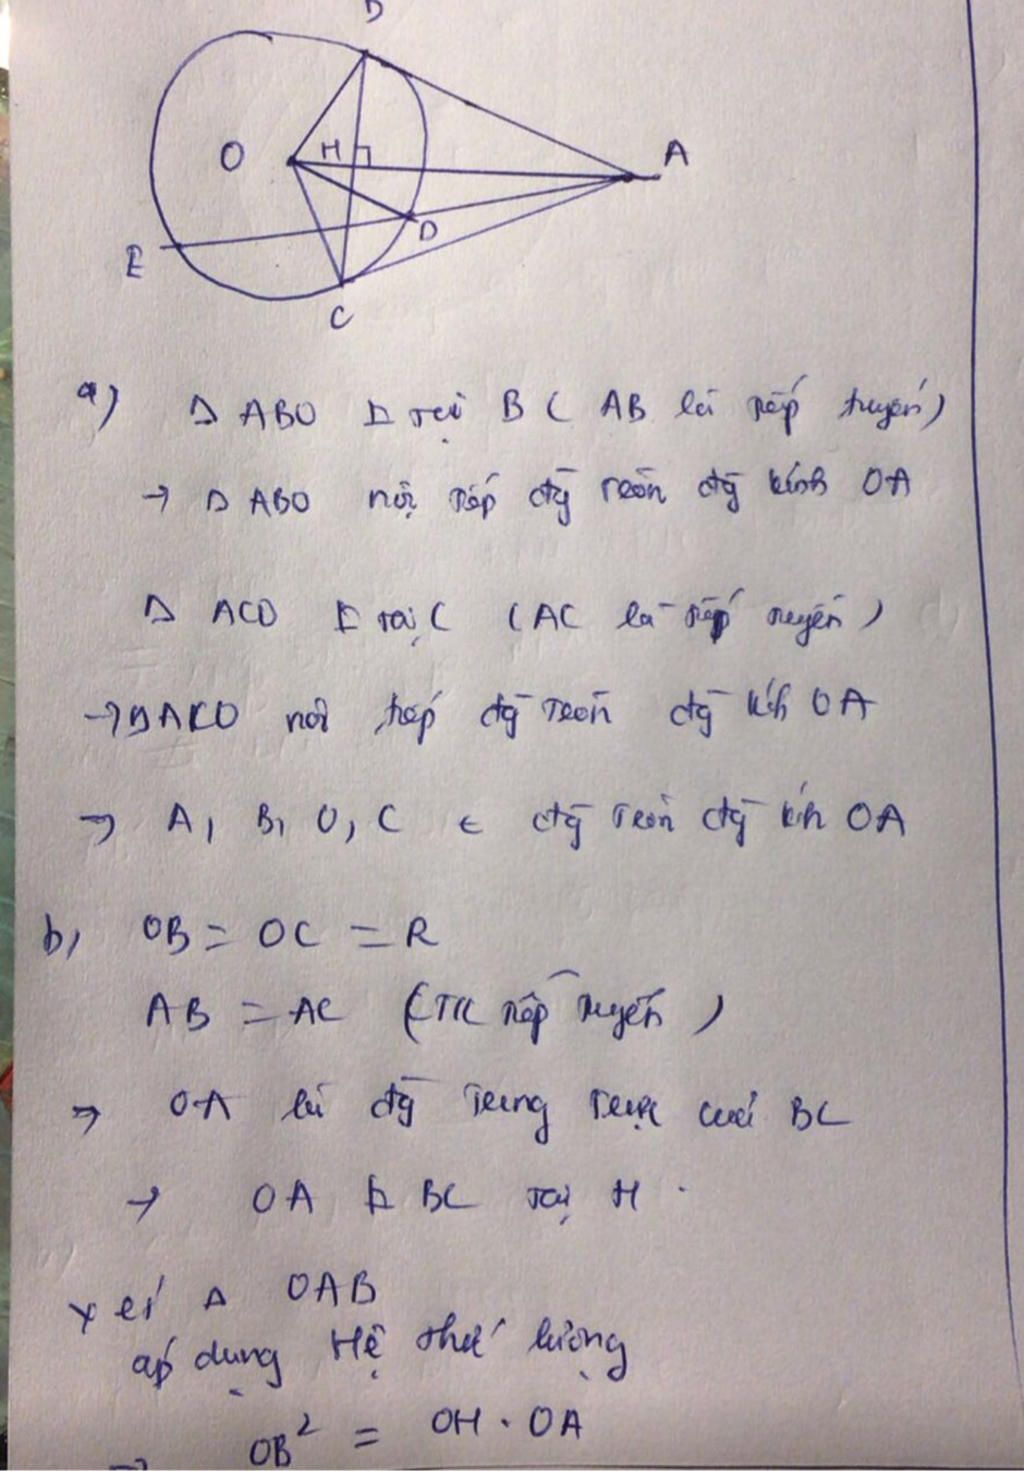 B
O
H
A
D
E
C
a) Δ ABO ⊥ tại B ( AB là tiếp tuyến)
→ Δ ABO nội tiếp đg̅ tròn đg̅ kính OA
Δ ACO ⊥ tại C ( AC là tiếp tuyến )
→ Δ ACO nội tiếp đg̅ tròn đg̅ kính OA
→ A, B, O, C ∈ đg̅ tròn đg̅ kính OA
b, OB = OC = R
AB = AC (TC tiếp tuyến )
→ OA là đg̅ trung trực của BC
→ OA ⊥ BC tại H .
xét Δ OAB
áp dụng Hệ thức lượng
→ OB² = OH . OA